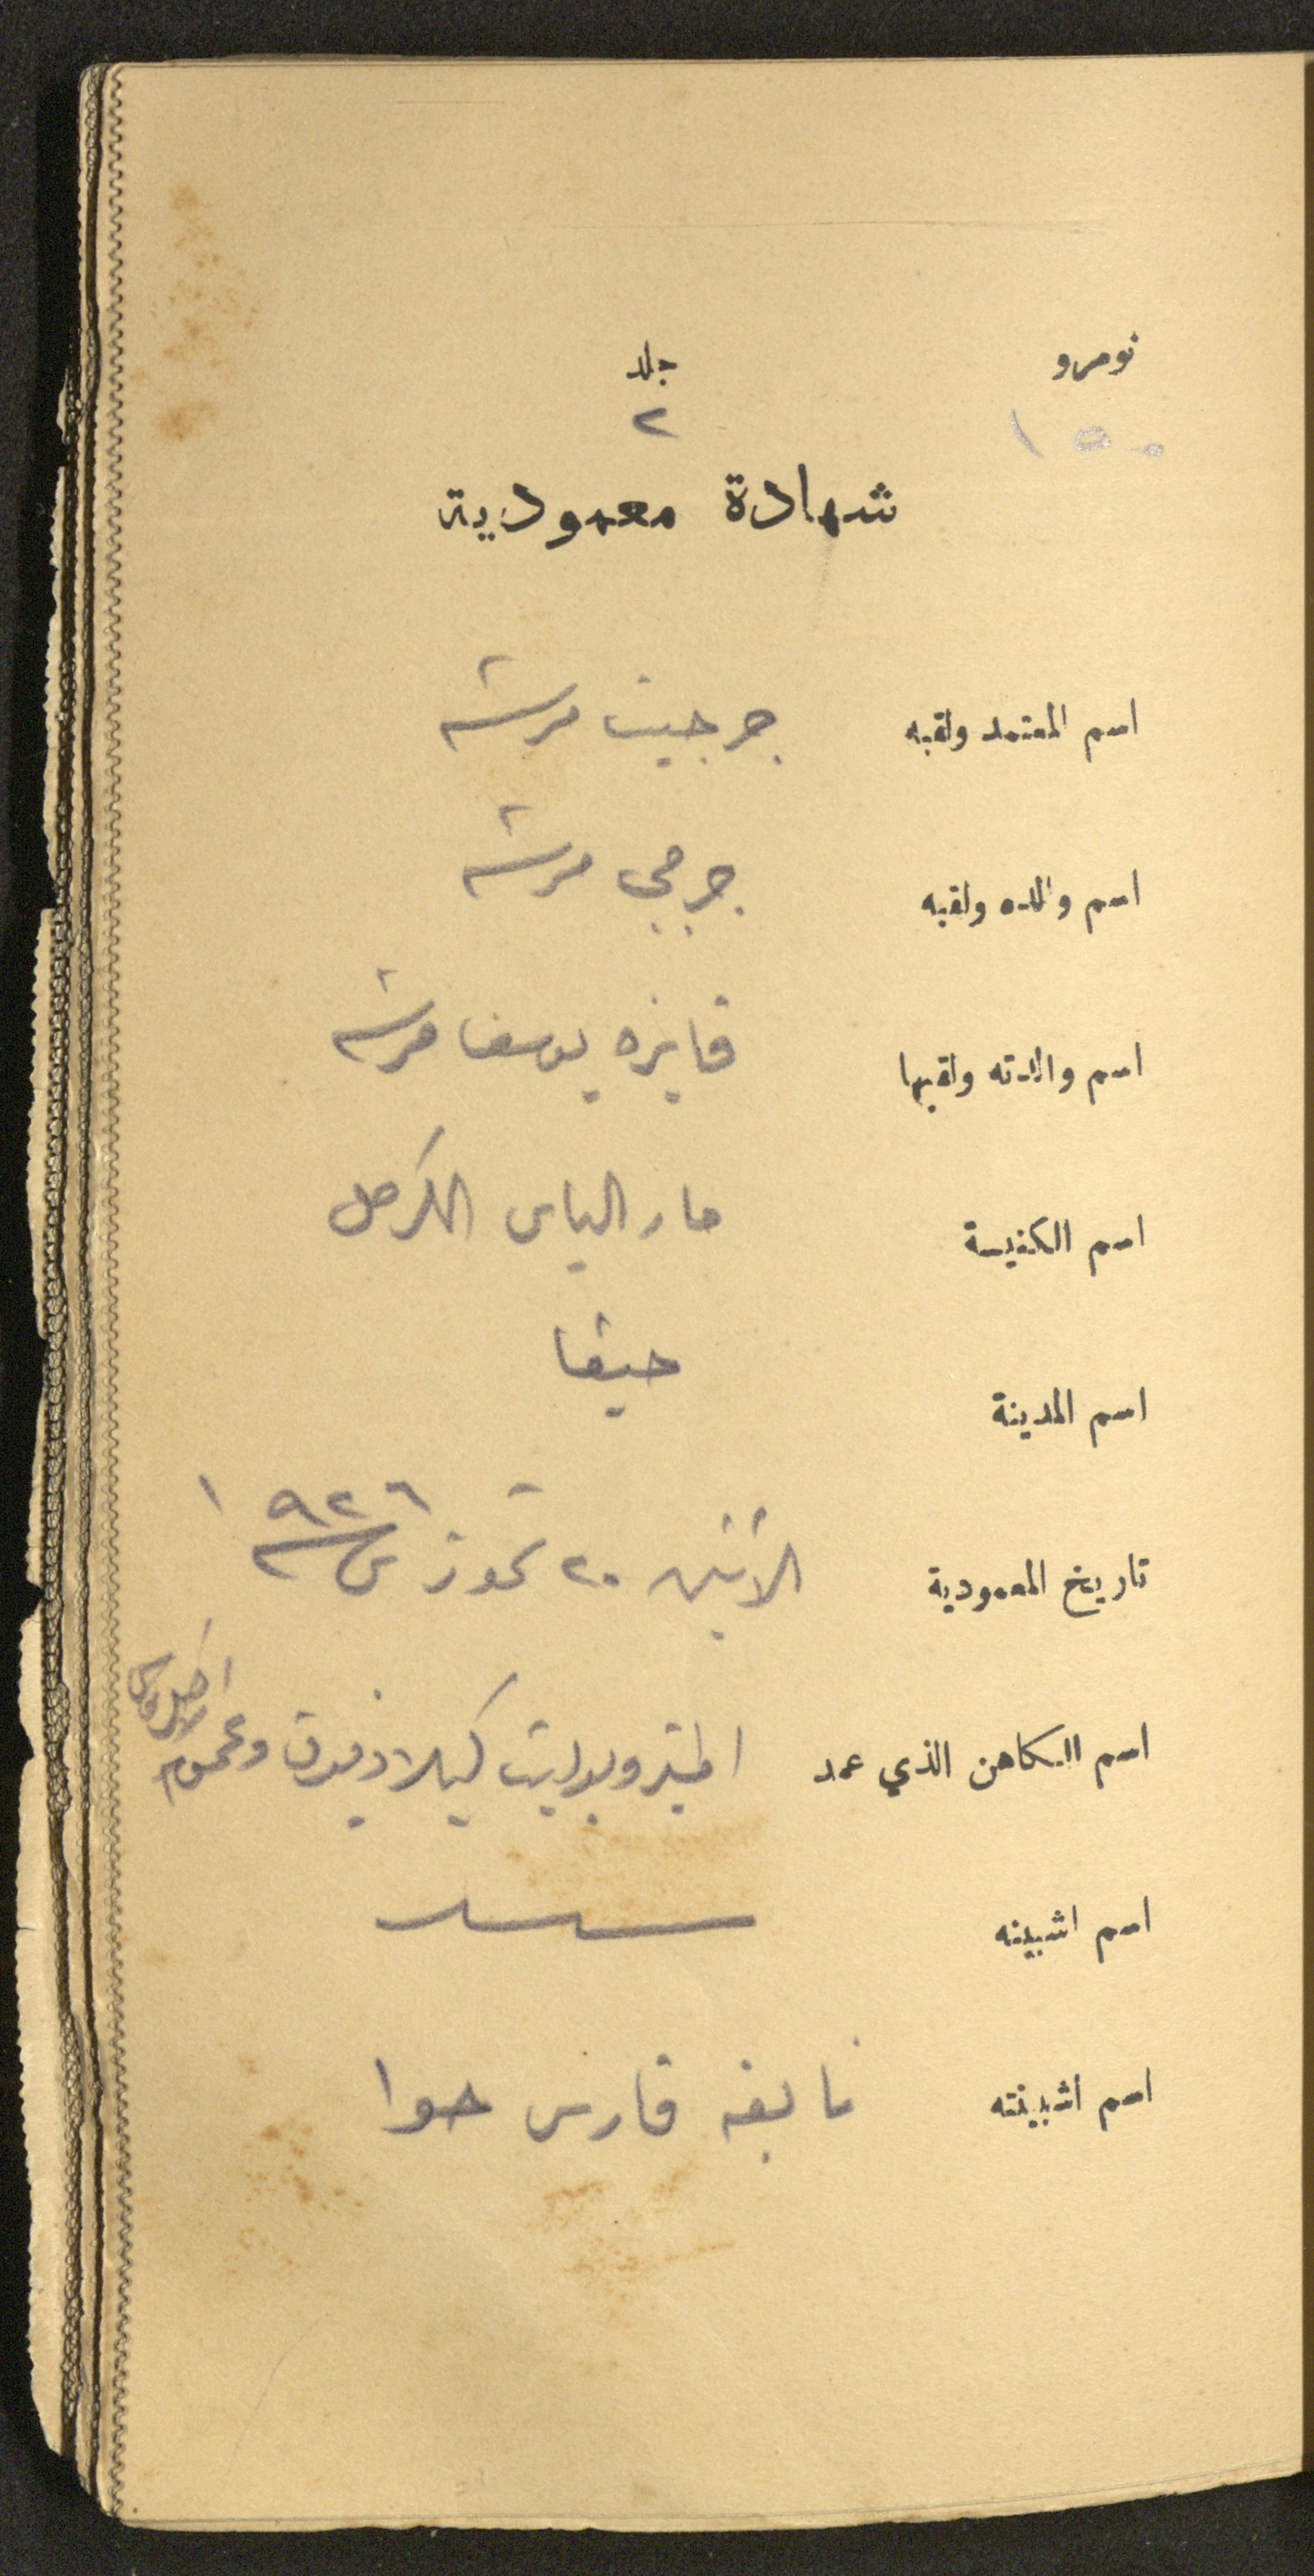 نومرو جلد
١٥٠ ٢
شهادة معمودية
اسم المعتمد ولقبه جرجيت مرشه
اسم والده ولقبه جرجي مرشه
اسم والدته ولقبها فايزه يوسف مرشه
اسم الكنيسة مار الياس الكرمل
اسم المدينة حيفا
تاريخ المعمودية الاثنين ٢٠ تموز ١٩٢٦
اسم الكاهن الذي عمد المتروبوليت كيلادفيون وعموم
اسم اشبينه
اسم اشبينته نايفه فارس حوا